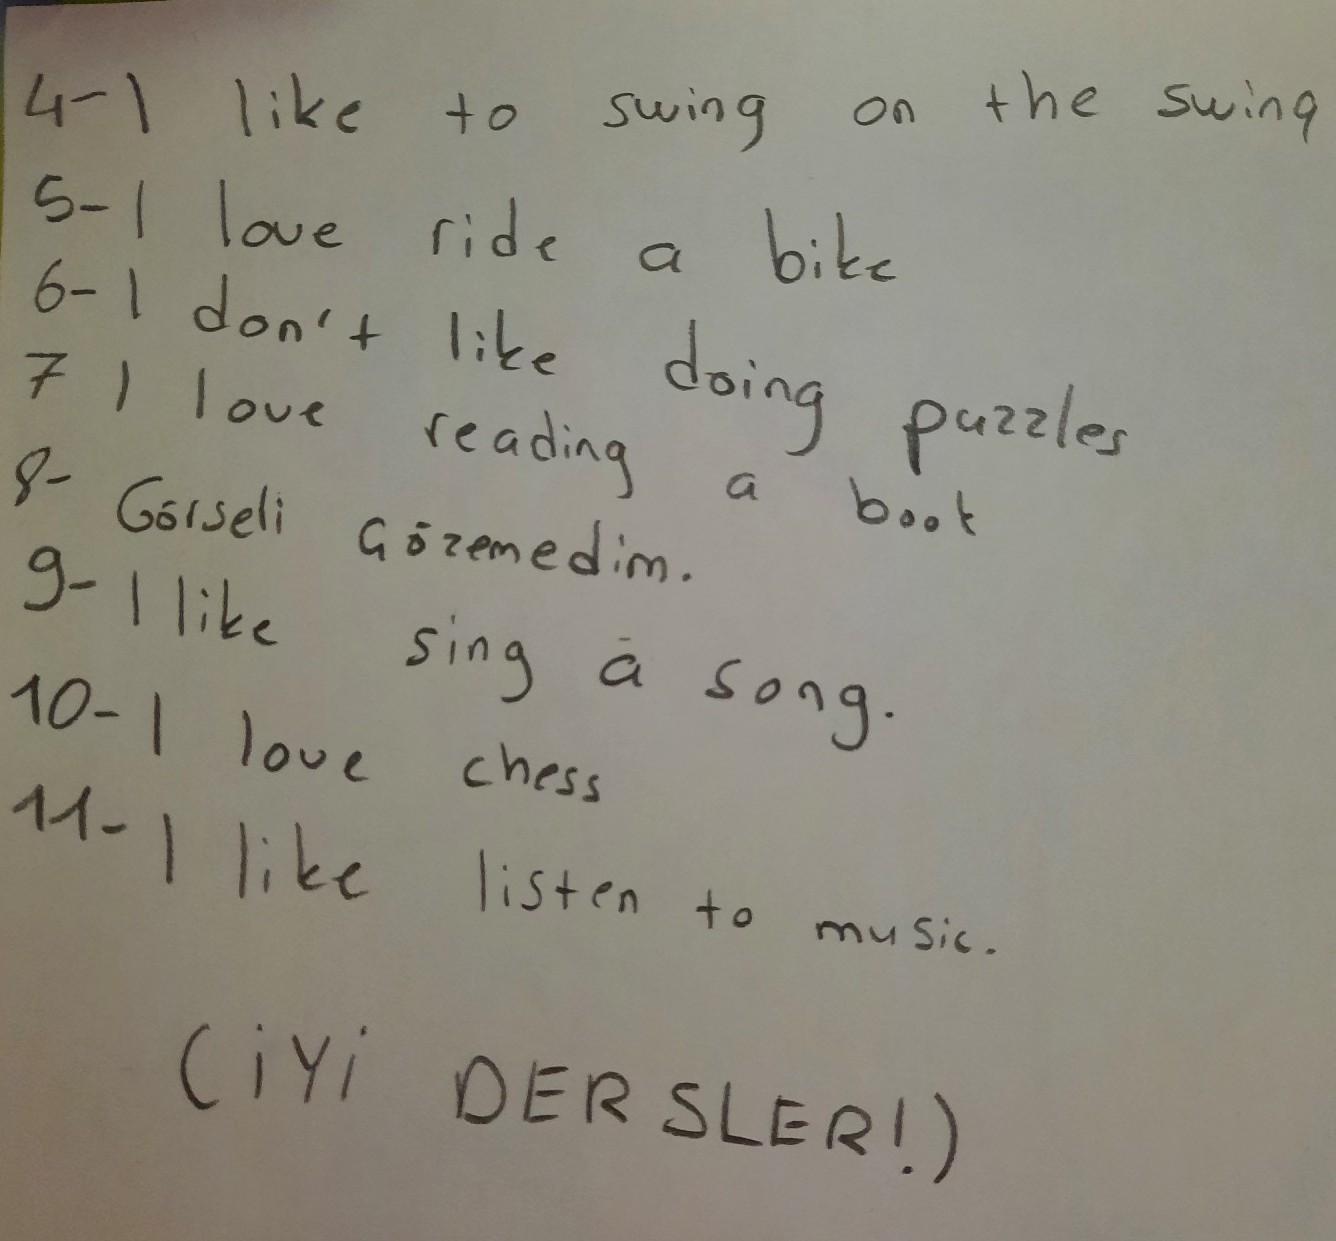 4-I like to swing on the swing
5-I love ride a bike
6-I don't like doing puzzles
7 I love reading a book
8- Görseli Gözemedim.
9-I like sing a song.
10-I love chess
11-I like listen to music.
(iYi DERSLER!)